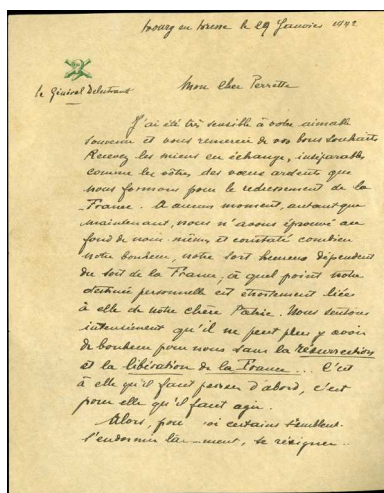 Bourg en Bresse le 29 Janvier 1942
Le Général Delestraint
Mon Cher Perrette
J'ai été très sensible à votre aimable
souvenir et vous remercie de vos bons souhaits
Recevez les miens en échange, inséparables
comme les vôtres des vœux ardents que
nous formons pour le redressement de la
France. A aucun moment, autant que
maintenant, nous n'avons éprouvé au
fond de nous-mêmes et constaté combien
notre bonheur, notre sort heureux dépendent
du sort de la France, à quel point notre
destinée personnelle est étroitement liée
à elle de notre chère Patrie. Nous sentons
intensément qu'il ne peut plus y avoir
de bonheur pour nous sans la résurrection
et la libération de la France... C'est
à elle qu'il faut penser d'abord, c'est
pour elle qu'il faut agir.
Alors, certains semblent
s'endormir, se résigner..